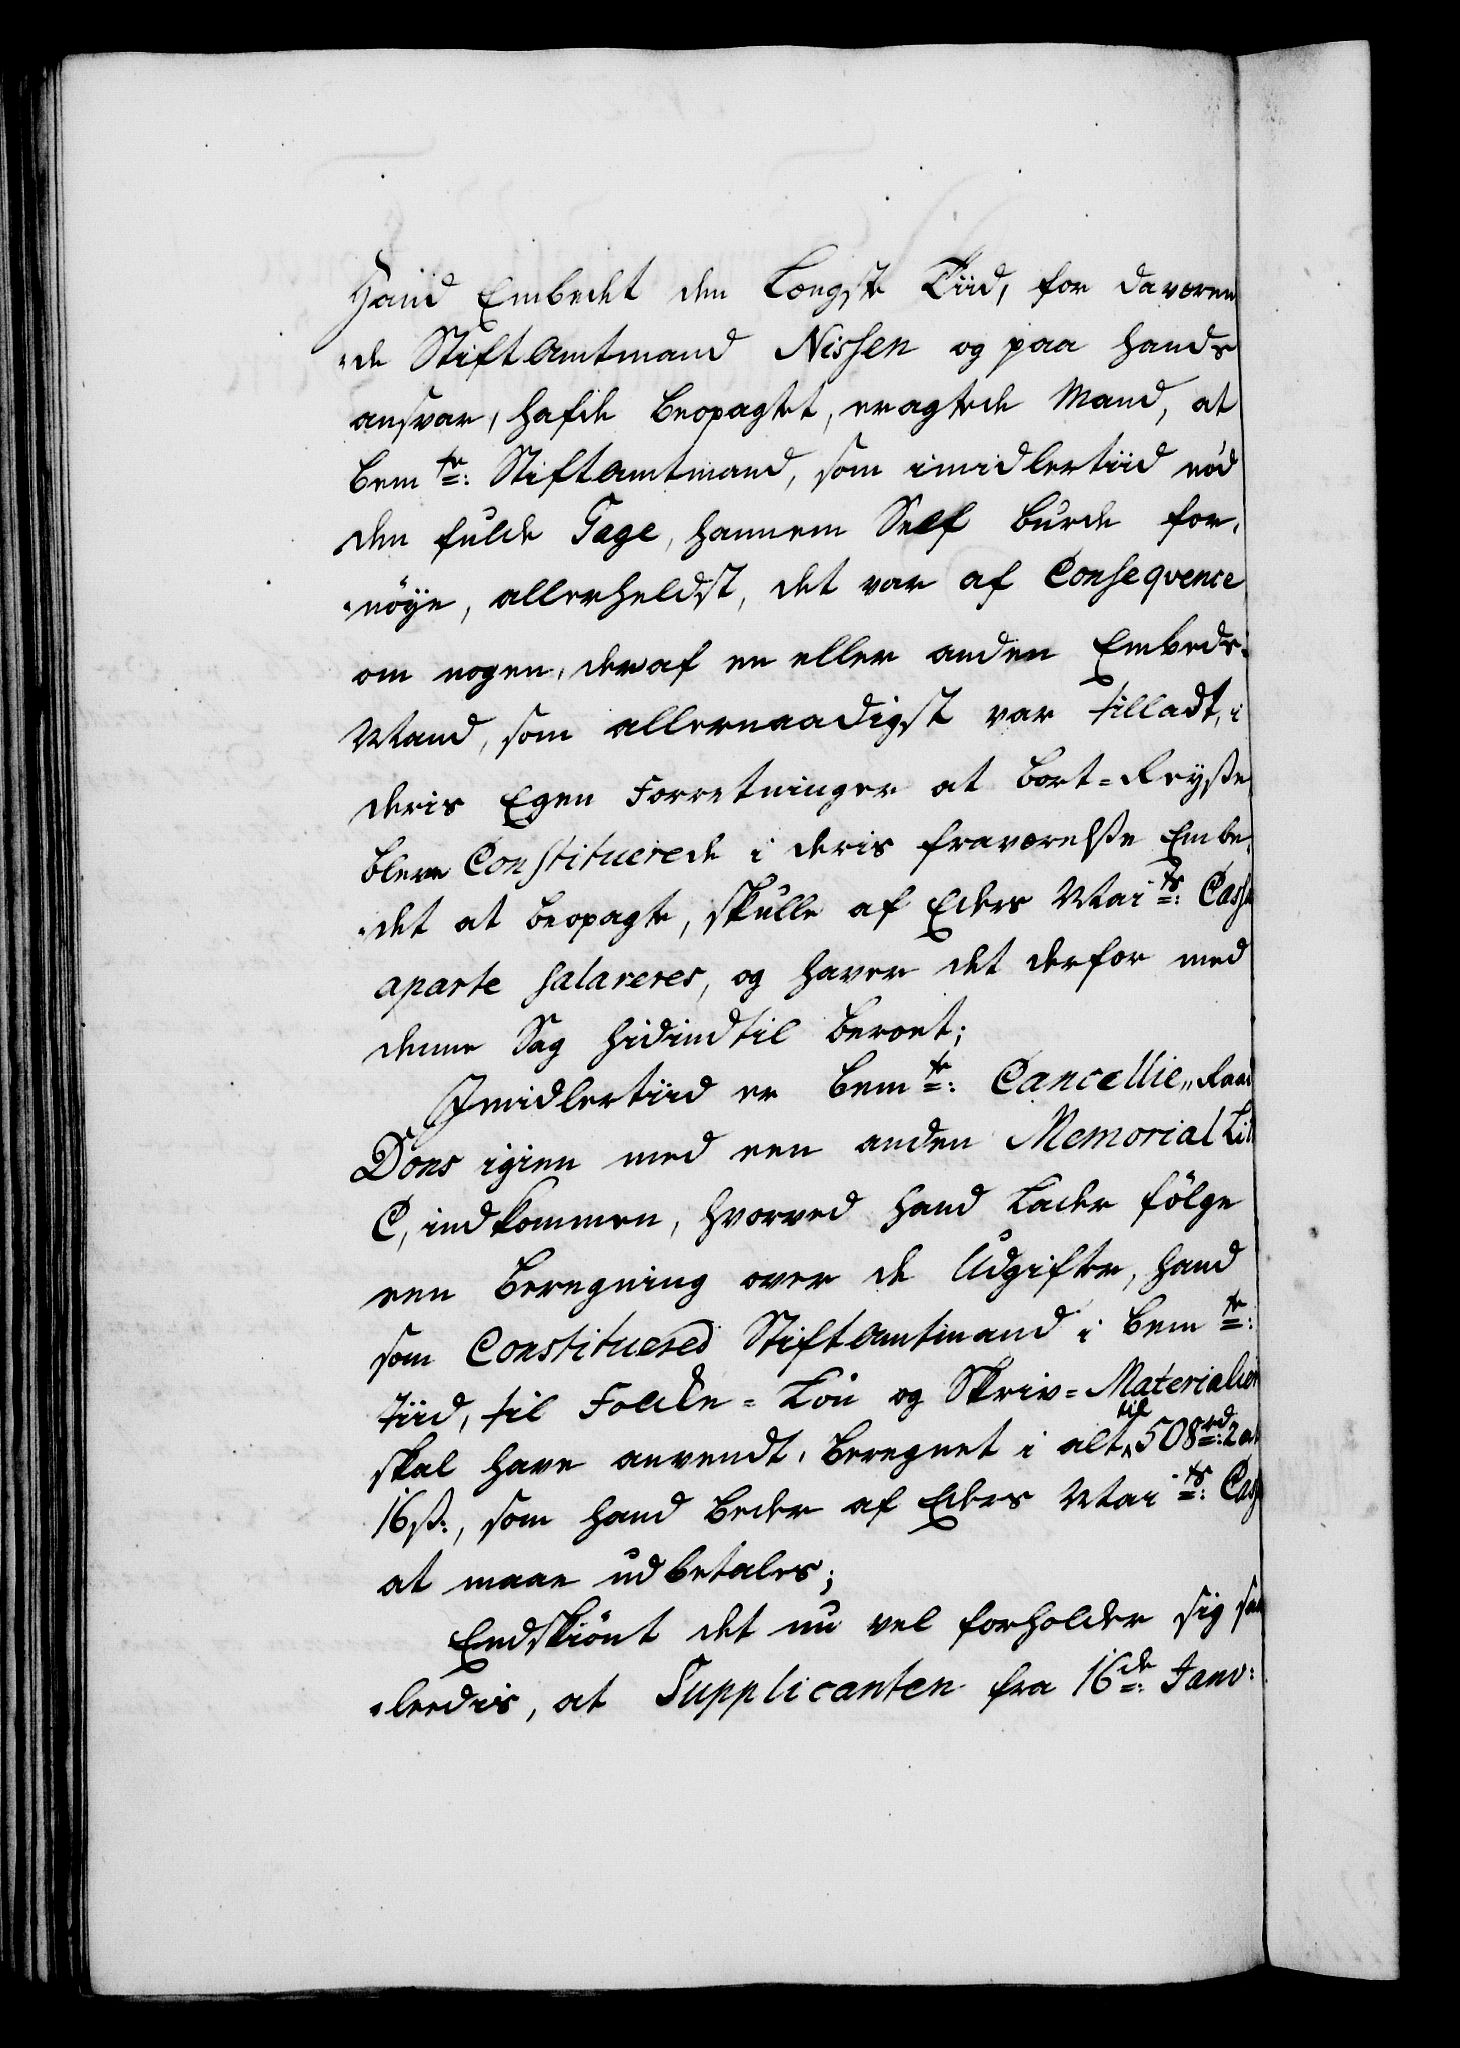 Hand Embedet den Længste Tiid, for daværen
de Stiftamtmand Nissen og paa hands
ansvar, hafde beopagtet, eragtede Mand, at
bem<sup>te</sup>: Stiftamtmand, som imidlertiid nød
den fulde Gage, hannem Self burde for,
nöye, allerheldst, det var af Conseqvence
om nogen, deraf en eller anden Embeds-
Mand, som allernaadigst var tilladt, i
deris Egen Forretninger at bort=Reyse
bleve Constituerede i deris fraværelsse Embe,
det at beopagte, skulle af Eders Mai<sup>ts</sup>: Cassa
aparte salareres, og haver det derfor med
denne Sag hidindtil beroet;
Imidlertiid er bem<sup>te</sup>: Cancellie,, Raad
Dons igien med een anden Memorial Lit
C, indkommen, hvorved hand Lader fölge
een Beregning over de Udgifter, hand
som Constituered Stiftamtmand i bem<sup>te</sup>:
tiid, til Folcke=Lön og Skriv=Materialier
skal have anvendt, beregnet i alt til 508<sup>rd</sup>: 2 ort
16 ß:, som hand beder af Eders Mai<sup>ts</sup>: Cassa
at maae udbetales;
Endskiönt det nu vel forholder sig saa
ledis, at Supplicanten fra 16<sup>de</sup>: Janv: